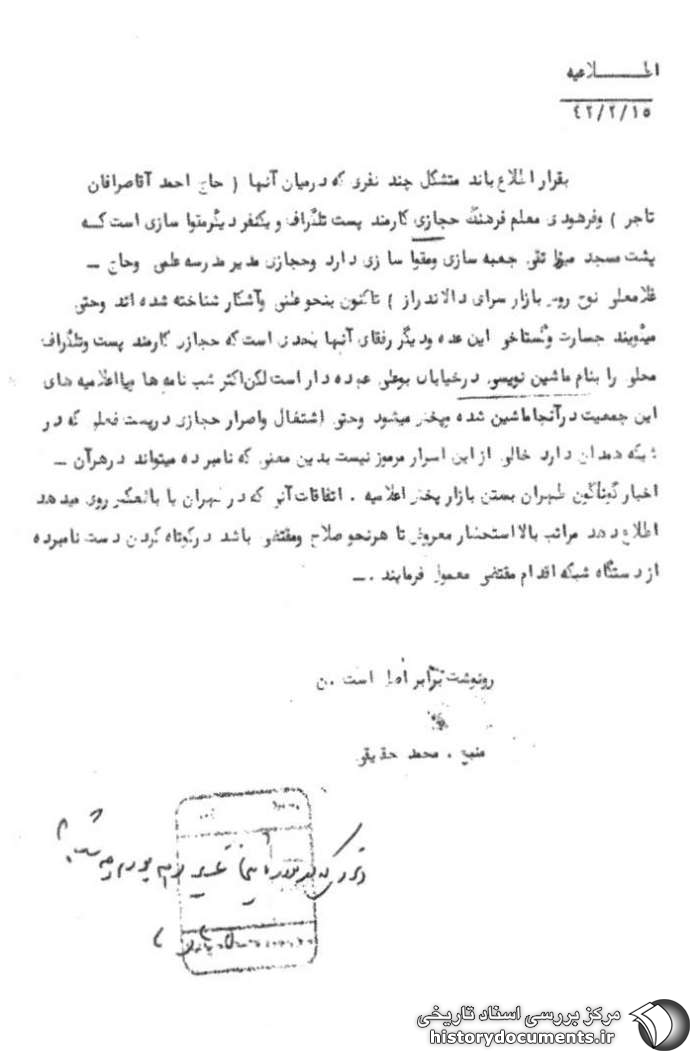 اطلاعیه
۴۲/۲/۱۵
بقرار اطلاع باند متشکل چند نفری که درمیان آنها ( حاج احمد آقا صرافان
تاجر ) وفرهودی معلم فرهنگ حجازی کارمند پست تلگراف و یکنفر دیگر مقوا سازی است که
پشت مسجد میرزا تقی جعبه سازی ومقوا سازی دارد وحجازی مدیر مدرسه علمی وحاج ـ
غلامعلی نوح روبر بازار سرای دالاندراز ) تاکنون بنحو علنی وآشکار شناخته شده اند وحتی
میگویند جسارت وگستاخی این عده ودیگر رفقای آنها بحدی است که حجازی کارمند پست وتلگراف
محلی را بنام ماشین نویسی درخیابان بوعلی عهده دار است لکن اکثر شب نامه ها ویااعلامیه های
این جمعیت درآنجا ماشین شده وپخش میشود وحتی اشتغال واصرار حجازی درپست فعلی که در
شبکه همدان دارد خالی از این اسرار مرموز نیست بدین معنی که نامبرده میتواند درهرآن ـ
اخبار گوناگون طهران بستن بازار پخش اعلامیه . اتفاقات آنی که در تهران یا بالعکس روی میدهد
اطلاع دهد مراتب بالا استحضار معروض تا هرنحو صلاح ومقتضی باشد درکوتاه کردن دست نامبرده
از دستگاه شبکه اقدام مقتضی معمول فرمایند .ـ
رونوشت برابر اصل است .ن
منبع . محمد حقیقی
مرکز بررسی اسناد تاریخی
historydocuments.ir